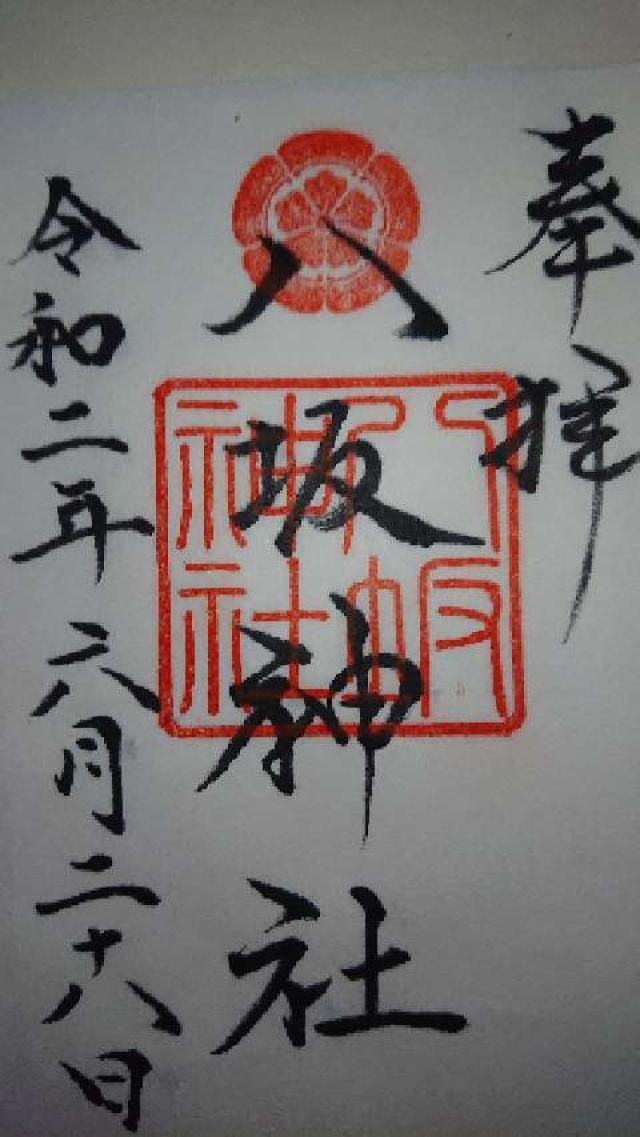 奉拝
八坂神社
八坂神社
令和二年六月二十八日